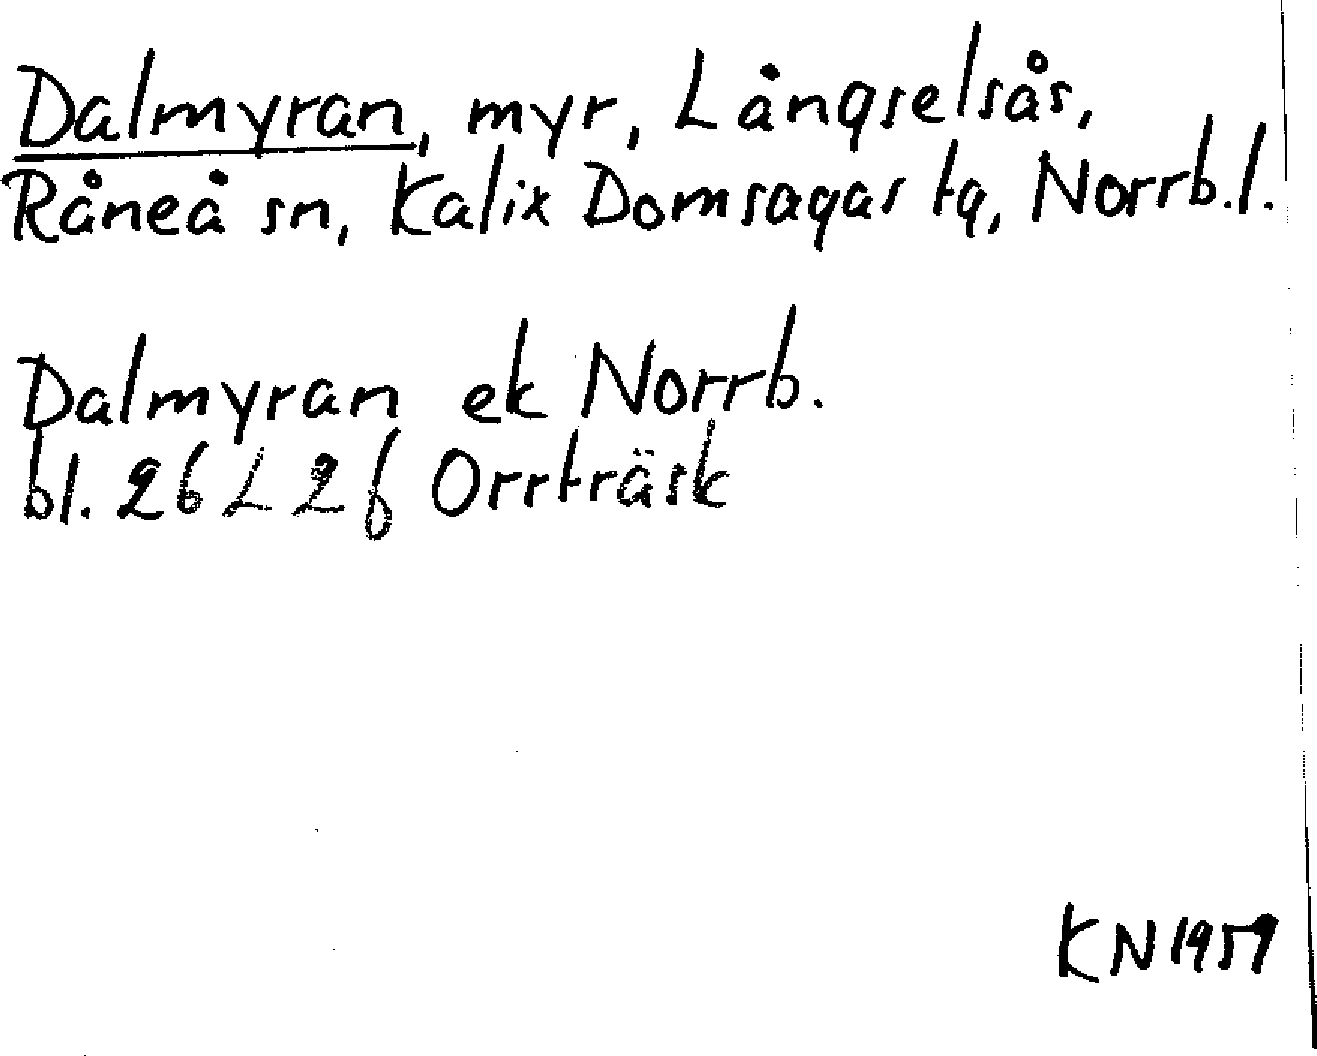 Dalmyran, myr, Långselsås,
Råneå sn, Kalix Domsagas tg, Norrb.l.
Dalmyran ek Norrb.
bl. 26 L 2f Orrträsk
KN 1959